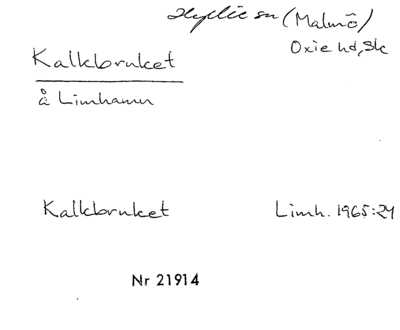 Hyllie sn (Malmö)
Oxie hd, Sk
Kalkbruket
å Limhamn
Kalkbruket Limh. 1965:24
Nr 21914